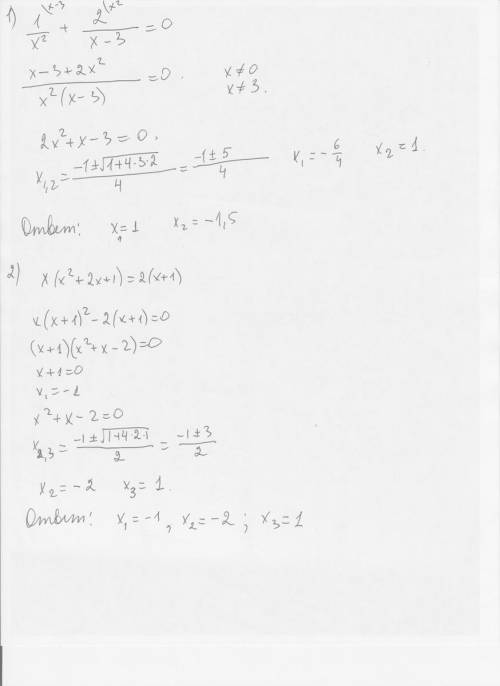 1) 1^(x-3 / x² + 2^(x² / x-3 = 0
x-3+2x² / x²(x-3) = 0. x≠0
x≠3.
2x²+x-3=0.
x₁,₂ = -1±√(1+4·3·2) / 4 = -1±5 / 4 x₁=-6/4 x₂=1.
Ответ: x₁=1 x₂=-1,5
2) x(x²+2x+1)=2(x+1)
x(x+1)²-2(x+1)=0
(x+1)(x²+x-2)=0
x+1=0
x₁=-1
x²+x-2=0
x₂,₃ = -1±√(1+4·2·1) / 2 = -1±3 / 2
x₂=-2 x₃=1.
Ответ: x₁=-1, x₂=-2; x₃=1